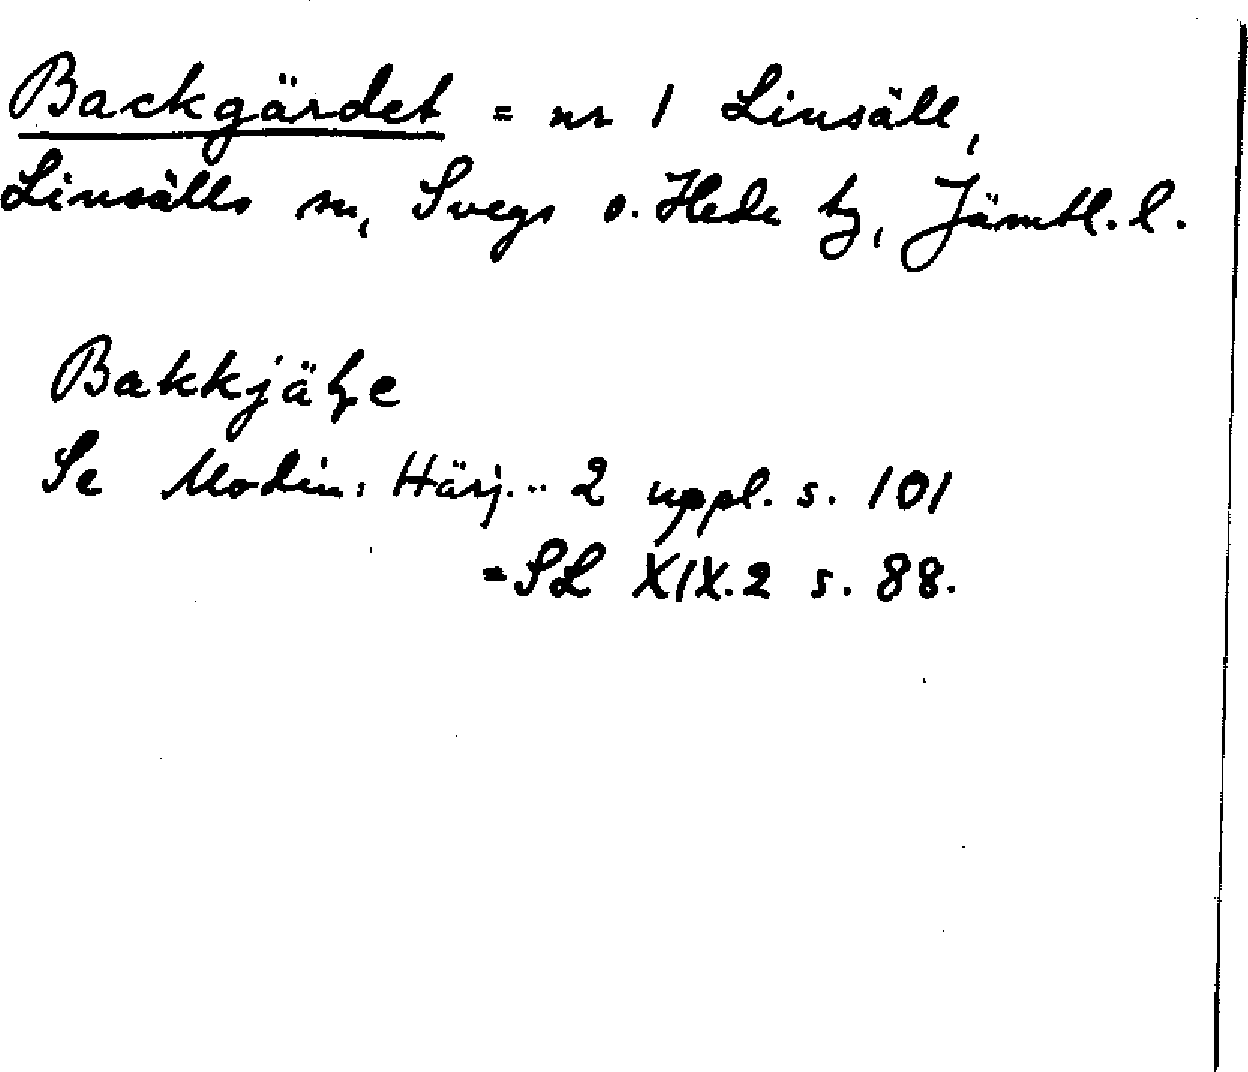 Backgärdet = nr 1 Linsäll,
Linsälls sn, Svegs o. Hede tg, Jämtl. l.
Se Modin: Härj... 2 uppl. s. 101
=SL XIX.2 s. 88.